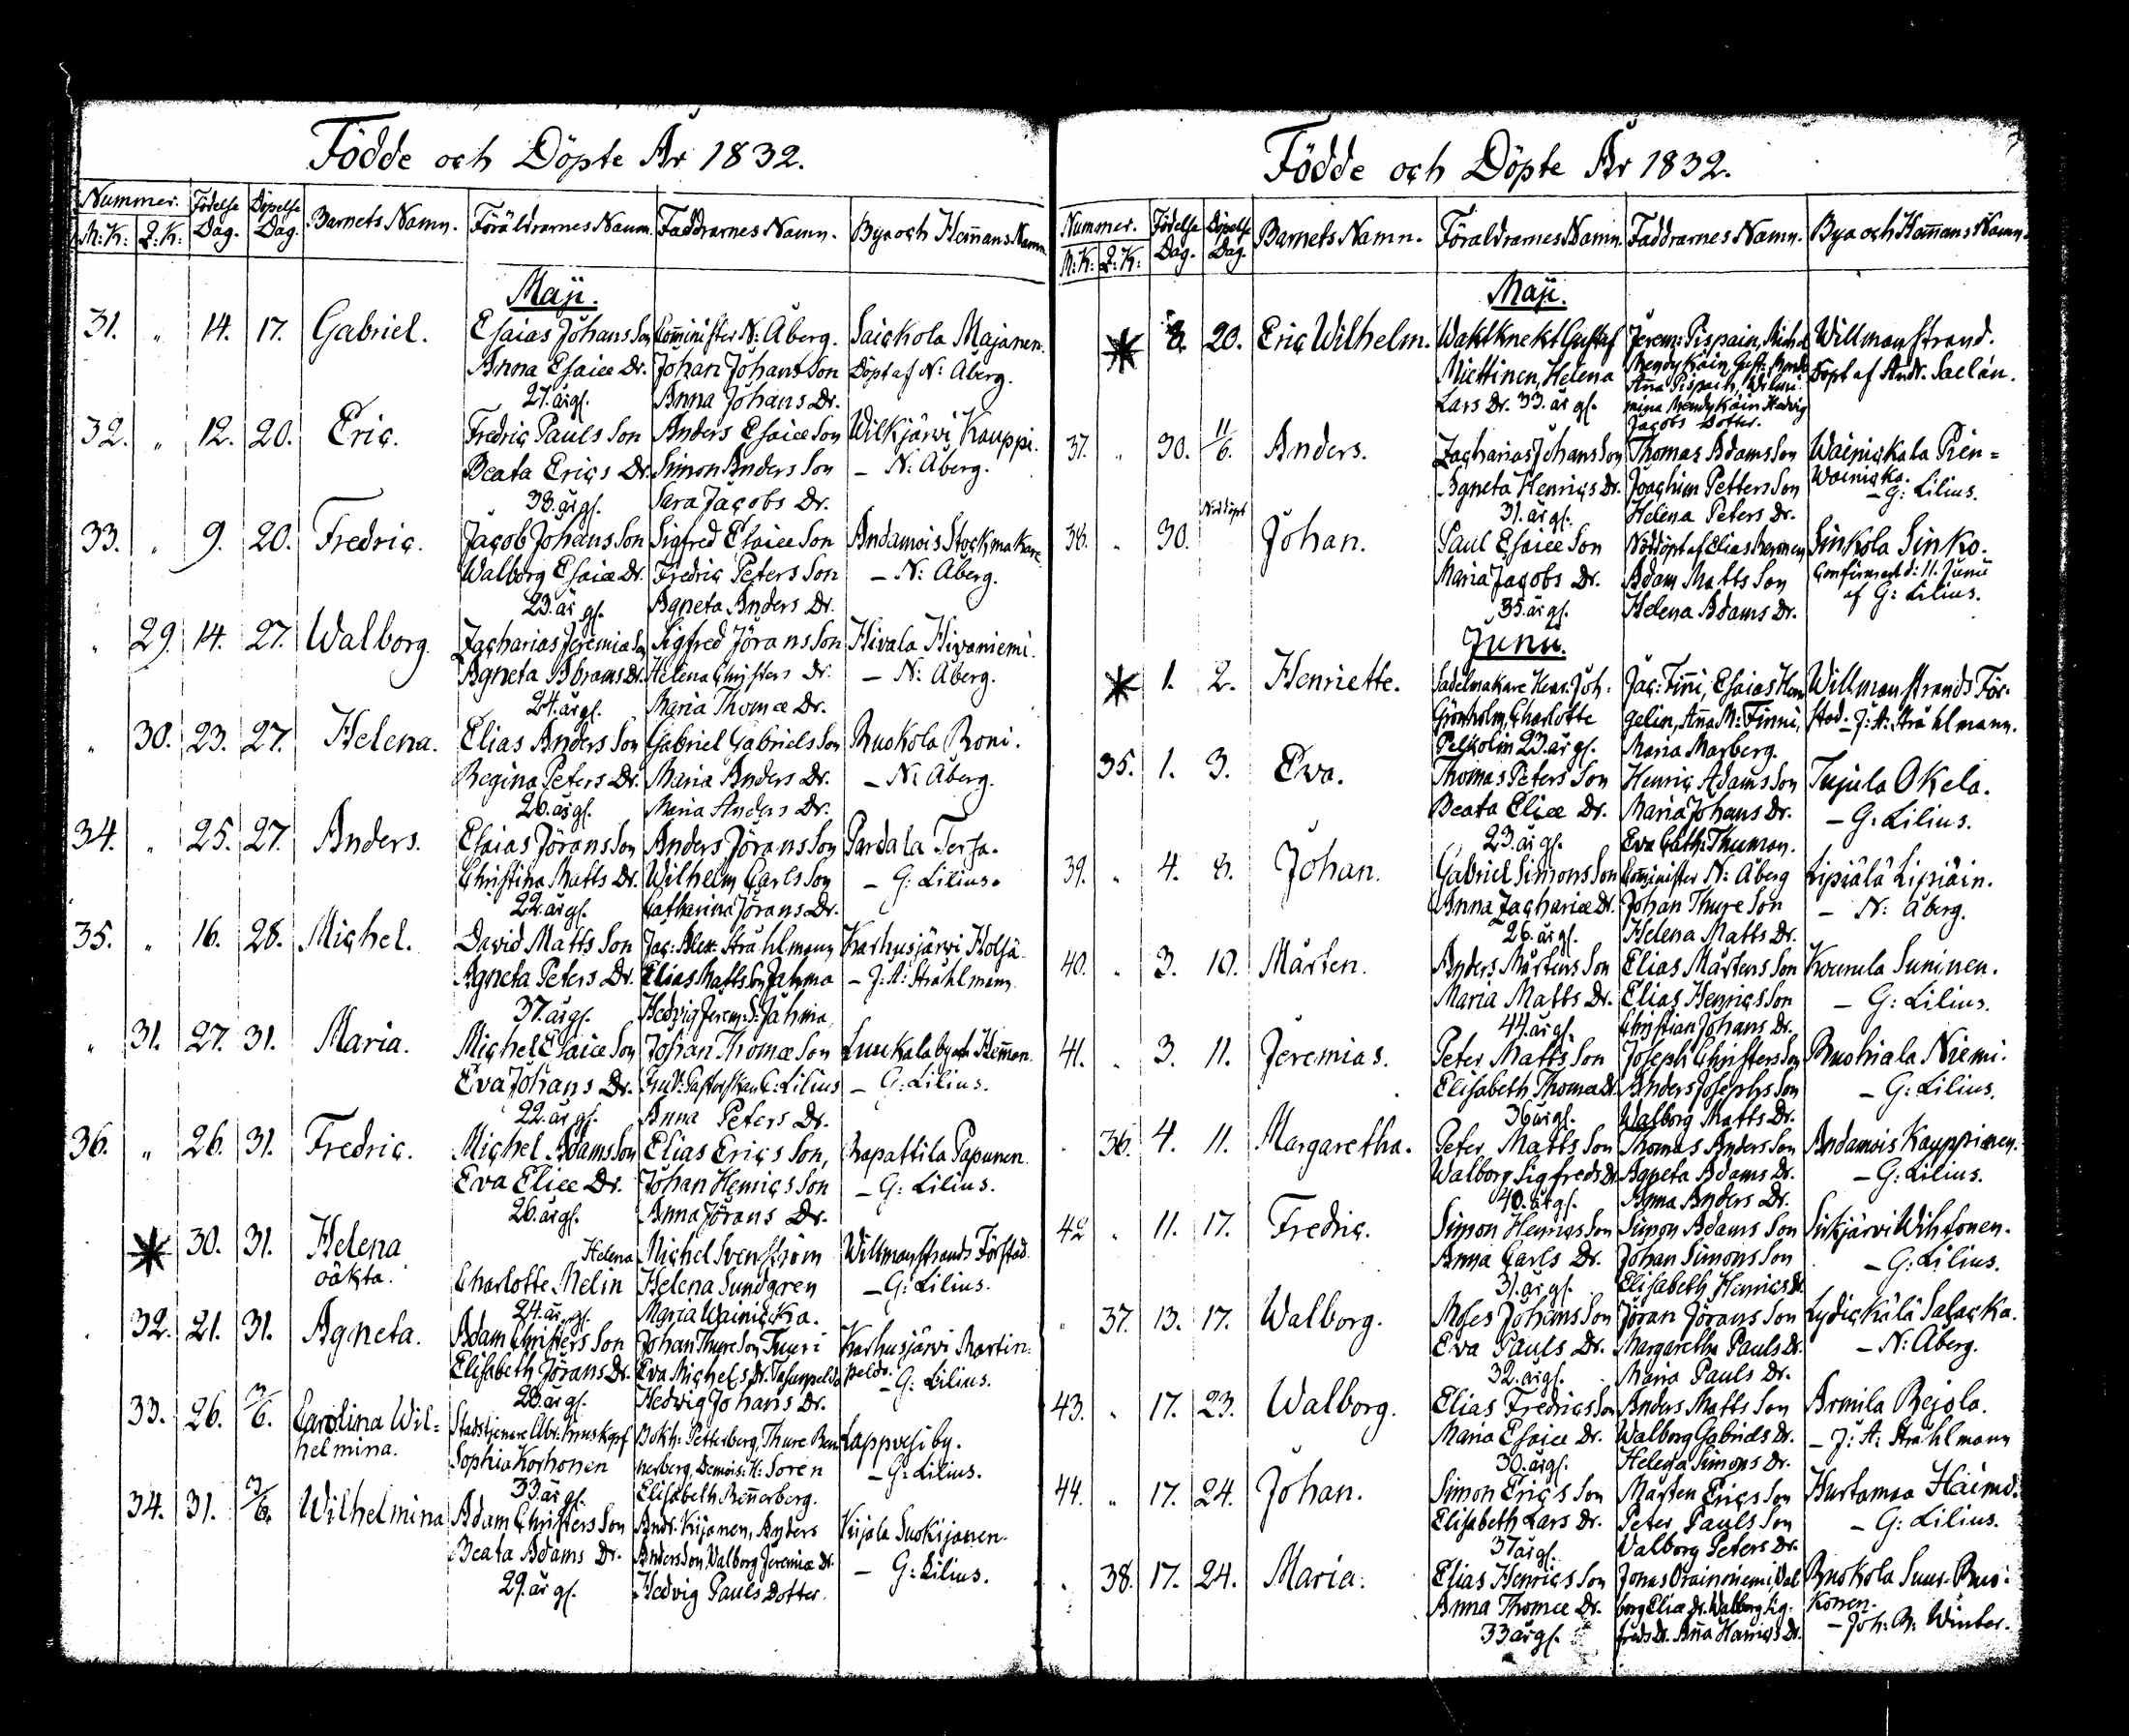 Födde och Döpte År 1832.
Nummer. Födelse Dag. Döpelse Dag. Barnets Namn. Föräldrarnes Namn. Faddrarnes Namn. By och Hem̄ans Namn.
M: K: Q: K:
Maji.
31. „ 14. 17. Gabriel. Esaias Johans Son Com̄inister N: Åberg. Saickola Majanen.
Anna Esaiæ Dr. Johan Johans Son Döpt af N: Åberg.
27. år gl. Anna Johans Dr.
32. „ 12. 20. Eric. Fredric Pauls Son Anders Esaiæ Son Wilkjärvi Kauppi.
Beata Erics Dr. Simon Anders Son – N: Åberg.
38. år gl. Sara Jacobs Dr.
33. „ 9. 20. Fredric. Jacob Johans Son Sigfred Esaiæ Son Andamois Stockmakare
Walborg Esaiæ Dr. Fredric Peters Son – N: Åberg.
23. år gl. Agneta Anders Dr.
„ 29. 14. 27. Walborg. Zacharias Jeremiæ Son Sigfred Jörans Son Hivala Hivaniemi.
Agneta Abrams Dr. Helena Christers Dr. – N: Åberg.
24. år gl. Maria Thomæ Dr.
„ 30. 23. 27. Helena. Elias Anders Son Gabriel Gabriels Son Ruokola Roni.
Regina Peters Dr. Maria Anders Dr. – N: Åberg.
26. år gl. Maria Anders Dr.
34. „ 25. 27. Anders. Esaias Jörans Son Anders Jörans Son Pardala Tersa.
Christina Matts Dr. Wilhelm Carls Son – G: Lilius.
22. år gl. Catharina Jörans Dr.
35. „ 16. 28. Michel. David Matts Son Jac: Alex: Stråhlmann Karhusjärvi Holsä
Agneta Peters Dr. Elias Matts Son Jahma – J: A: Stråhlmann
37. år gl. Hedvig Jerem: D: Jahma
„ 31. 27. 31. Maria. Michel Esaiæ Son Johan Thomæ Son Luukala by och Hem̄an.
Eva Johans Dr. G: Lilius – G: Lilius.
22. år gl. Anna Peters Dr.
36. „ 26. 31. Fredric. Michel Adams Son Elias Erics Son, Rapattila Papunen.
Eva Eliæ Dr. Johan Henrics Son – G: Lilius.
26. år gl. Anna Jörans Dr.
30. 31. Helena Helena Michel Svenström Willmanstrands Förstad
oäkta. Charlotte Melin Helena Sundgren – G: Lilius.
24. år gl. Maria Wainicka.
32. 21. 31. Agneta. Adam Christers Son Johan Thure Son Tuuri Karhusjärvi Martin-
Elisabeth Jörans Dr. Eva Michels Dr. peldo. – G: Lilius.
28. år gl. Hedvig Johans Dr.
33. 26. 3/6. Carolina Wil- Stadstjenare Abr: Bokh: Petterberg, Thure Ren- Lappvesi by.
helmina. Sophia Korhonen nerberg, Demois: H: Soren – G: Lilius.
33. år gl. Elisabeth Ren̄erberg.
34. 31. 3/6. Wilhelmina Adam Christers Son Andr: Kijanen, Anders Kijala Suokijanen.
Beata Adams Dr. Anders Son, Valborg Jeremiæ Dr. – G: Lilius.
29. år gl. Hedvig Pauls Dotter.
Födde och Döpte År 1832.
Nummer. Födelse Dag. Döpelse Dag. Barnets Namn. Föräldrarnes Namn. Faddrarnes Namn. By och Hem̄ans Namn.
M: K: Q: K:
Maji.
8. 20. Eric Wilhelm. Waktknekt Gustaf Jerem: Pispain, Michel Willmanstrand.
Miettinen, Helena Mendykäin, Gust: Döpt af Andr. Saelán.
Lars Dr. 33. år gl. Anna Pispain, Wilhel-
mina Mendykäin Hedvig
Jacobs Dotter.
37. „ 30. 11/6. Anders. Zacharias Johans Son Thomas Adams Son Wainickala Pien-
Agneta Henrics Dr. Joachim Petters Son Wainicka. – G: Lilius.
31. år gl. Helena Peters Dr.
38. „ 30. Nöddöpt Johan. Paul Esaiæ Son Nöddöpt af Elias Sinkola Sinko.
Maria Jacobs Dr. Adam Matts Son Confirmerad d: 11. Junii
35. år gl. Helena Adams Dr. af G: Lilius.
Junii.
1. 2. Henriette. Sadelmakare Henr: Joh: Jac: Fin̄i, Esaias Han- Willmanstrands För-
Grönholm, Charlotte gelin, An̄a M: Finni, stad. – J: A: Stråhlmann.
Pelkolin 23. år gl. Maria Marberg.
35. 1. 3. Eva. Thomas Peters Son Henric Adams Son Tujula Okela.
Beata Eliæ Dr. Maria Johans Dr. – G: Lilius.
23. år gl. Eva Cath: Thuman.
39. „ 4. 8. Johan. Gabriel Simons Son Com̄inister N: Åberg Lipiälä Lipiäin.
Anna Zachariæ Dr. Johan Thure Son – N: Åberg.
26. år gl. Helena Matts Dr.
40. „ 3. 10. Mårten. Anders Mårtens Son Elias Mårtens Son Suninen.
Maria Matts Dr. Elias Henrics Son – G: Lilius.
44. år gl. Christian Johans Dr.
41. „ 3. 11. Jeremias. Peter Matts Son Joseph Christers Son Ruohiala Niemi.
Elisabeth Thomæ Dr. Anders Josephs Son – G: Lilius.
36 år gl. Walborg Matts Dr.
36. 4. 11. Margaretha. Peter Matts Son Thomas Anders Son Andamois Kauppinen.
Walborg Sigfreds Dr. Agneta Adams Dr. – G: Lilius.
40. år gl. Anna Anders Dr.
42 „ 11. 17. Fredric. Simon Henrics Son Simon Adams Son Sirkjärvi Wihtonen.
Anna Carls Dr. Johan Simons Son – G: Lilius.
31. år gl. Elisabeth Henrics Dr.
„ 37. 13. 17. Walborg. Moses Johans Son Jöran Jörans Son Lydickälä Salacka.
Eva Pauls Dr. Margaretha Pauls Dr. – N: Åberg.
32. år gl. Maria Pauls Dr.
43. „ 17. 23. Walborg. Elias Fredrics Son Anders Matts Son Armila Rejola.
Maria Esaiæ Dr. Walborg Gabriels Dr. – J: A: Stråhlmann
30. år gl. Helena Simons Dr.
44. „ 17. 24. Johan. Simon Erics Son Mårten Erics Son Hurtamaa Haimi.
Elisabeth Lars Dr. Peter Pauls Son – G: Lilius.
37 år gl. Valborg Peters Dr.
„ 38. 17. 24. Maria. Elias Henrics Son Jonas Orainoniemi, Val- Ruokola Suur-Ruo-
Anna Thomæ Dr. borg Eliæ Dr. Walborg Sig- konen.
33 år gl. freds Dr. An̄a Henrics Dr. – Joh: R: Winter.